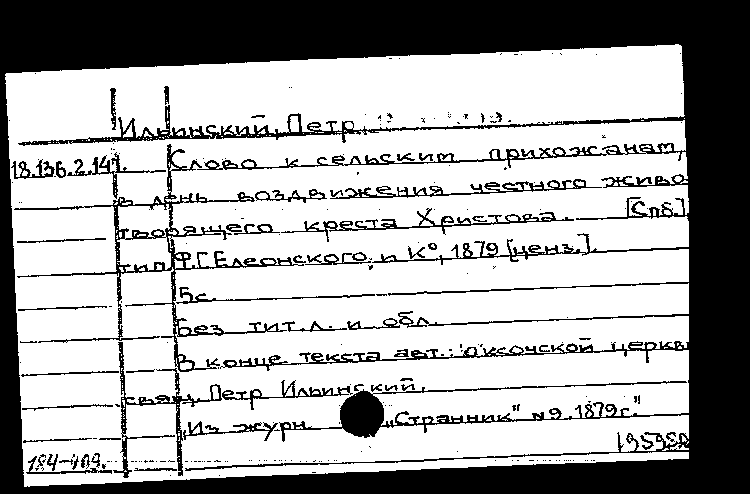 Ильинский, Петр
18.136.2.141. Слово к сельским прихожанам,
в день воздвижения честного живо-
творящего креста Христова. [Спб.],
тип. Ф.Г. Елеонского и К°, 1879 [ценз.].
5с.
Без тит.л. и обл.
В конце текста авт.: церкви
свящ. Петр Ильинский.
„Из журн. „Странник" №9. 1879г."
184-409.